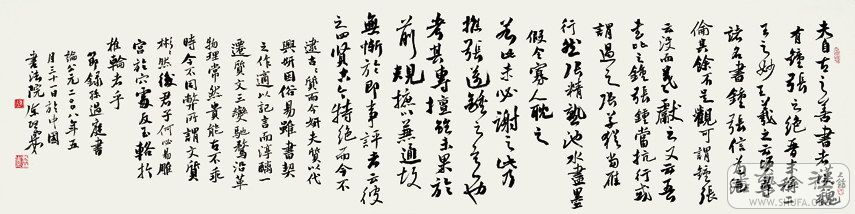 夫自古之善書者漢魏
有鍾張之絕晉末稱二
王之妙王羲之云頃尋
諸名書鍾張信為絕
倫其餘不足觀可謂鍾張
云沒而羲獻之又云吾
書比之鍾張鍾當抗行或
謂過之張草猶當雁
行然張精熟池水盡墨
假令寡人耽之
若此未必謝之此乃
推張邁鍾之意也
考其專擅雖未果於
前規摭以兼通故
無慚於即事評者云彼
之四賢古今特絕而今不
逮古質而今妍夫質以代
興妍因俗易雖書契
之作適以記言而淳醨一
遷質文三變馳騖沿革
物理常然貴能古不乖
時今不同弊所謂文質
彬彬然後君子何必易雕
宮於穴處反玉輅於
椎輪者乎
節錄孫過庭書
論公元二〇〇八年五
月三十一日於中國
書法院
WWW.SHUFA.COM